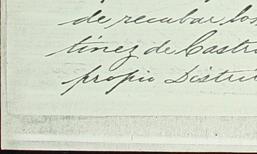 de recabar los
tínez de Castr
propio Distri